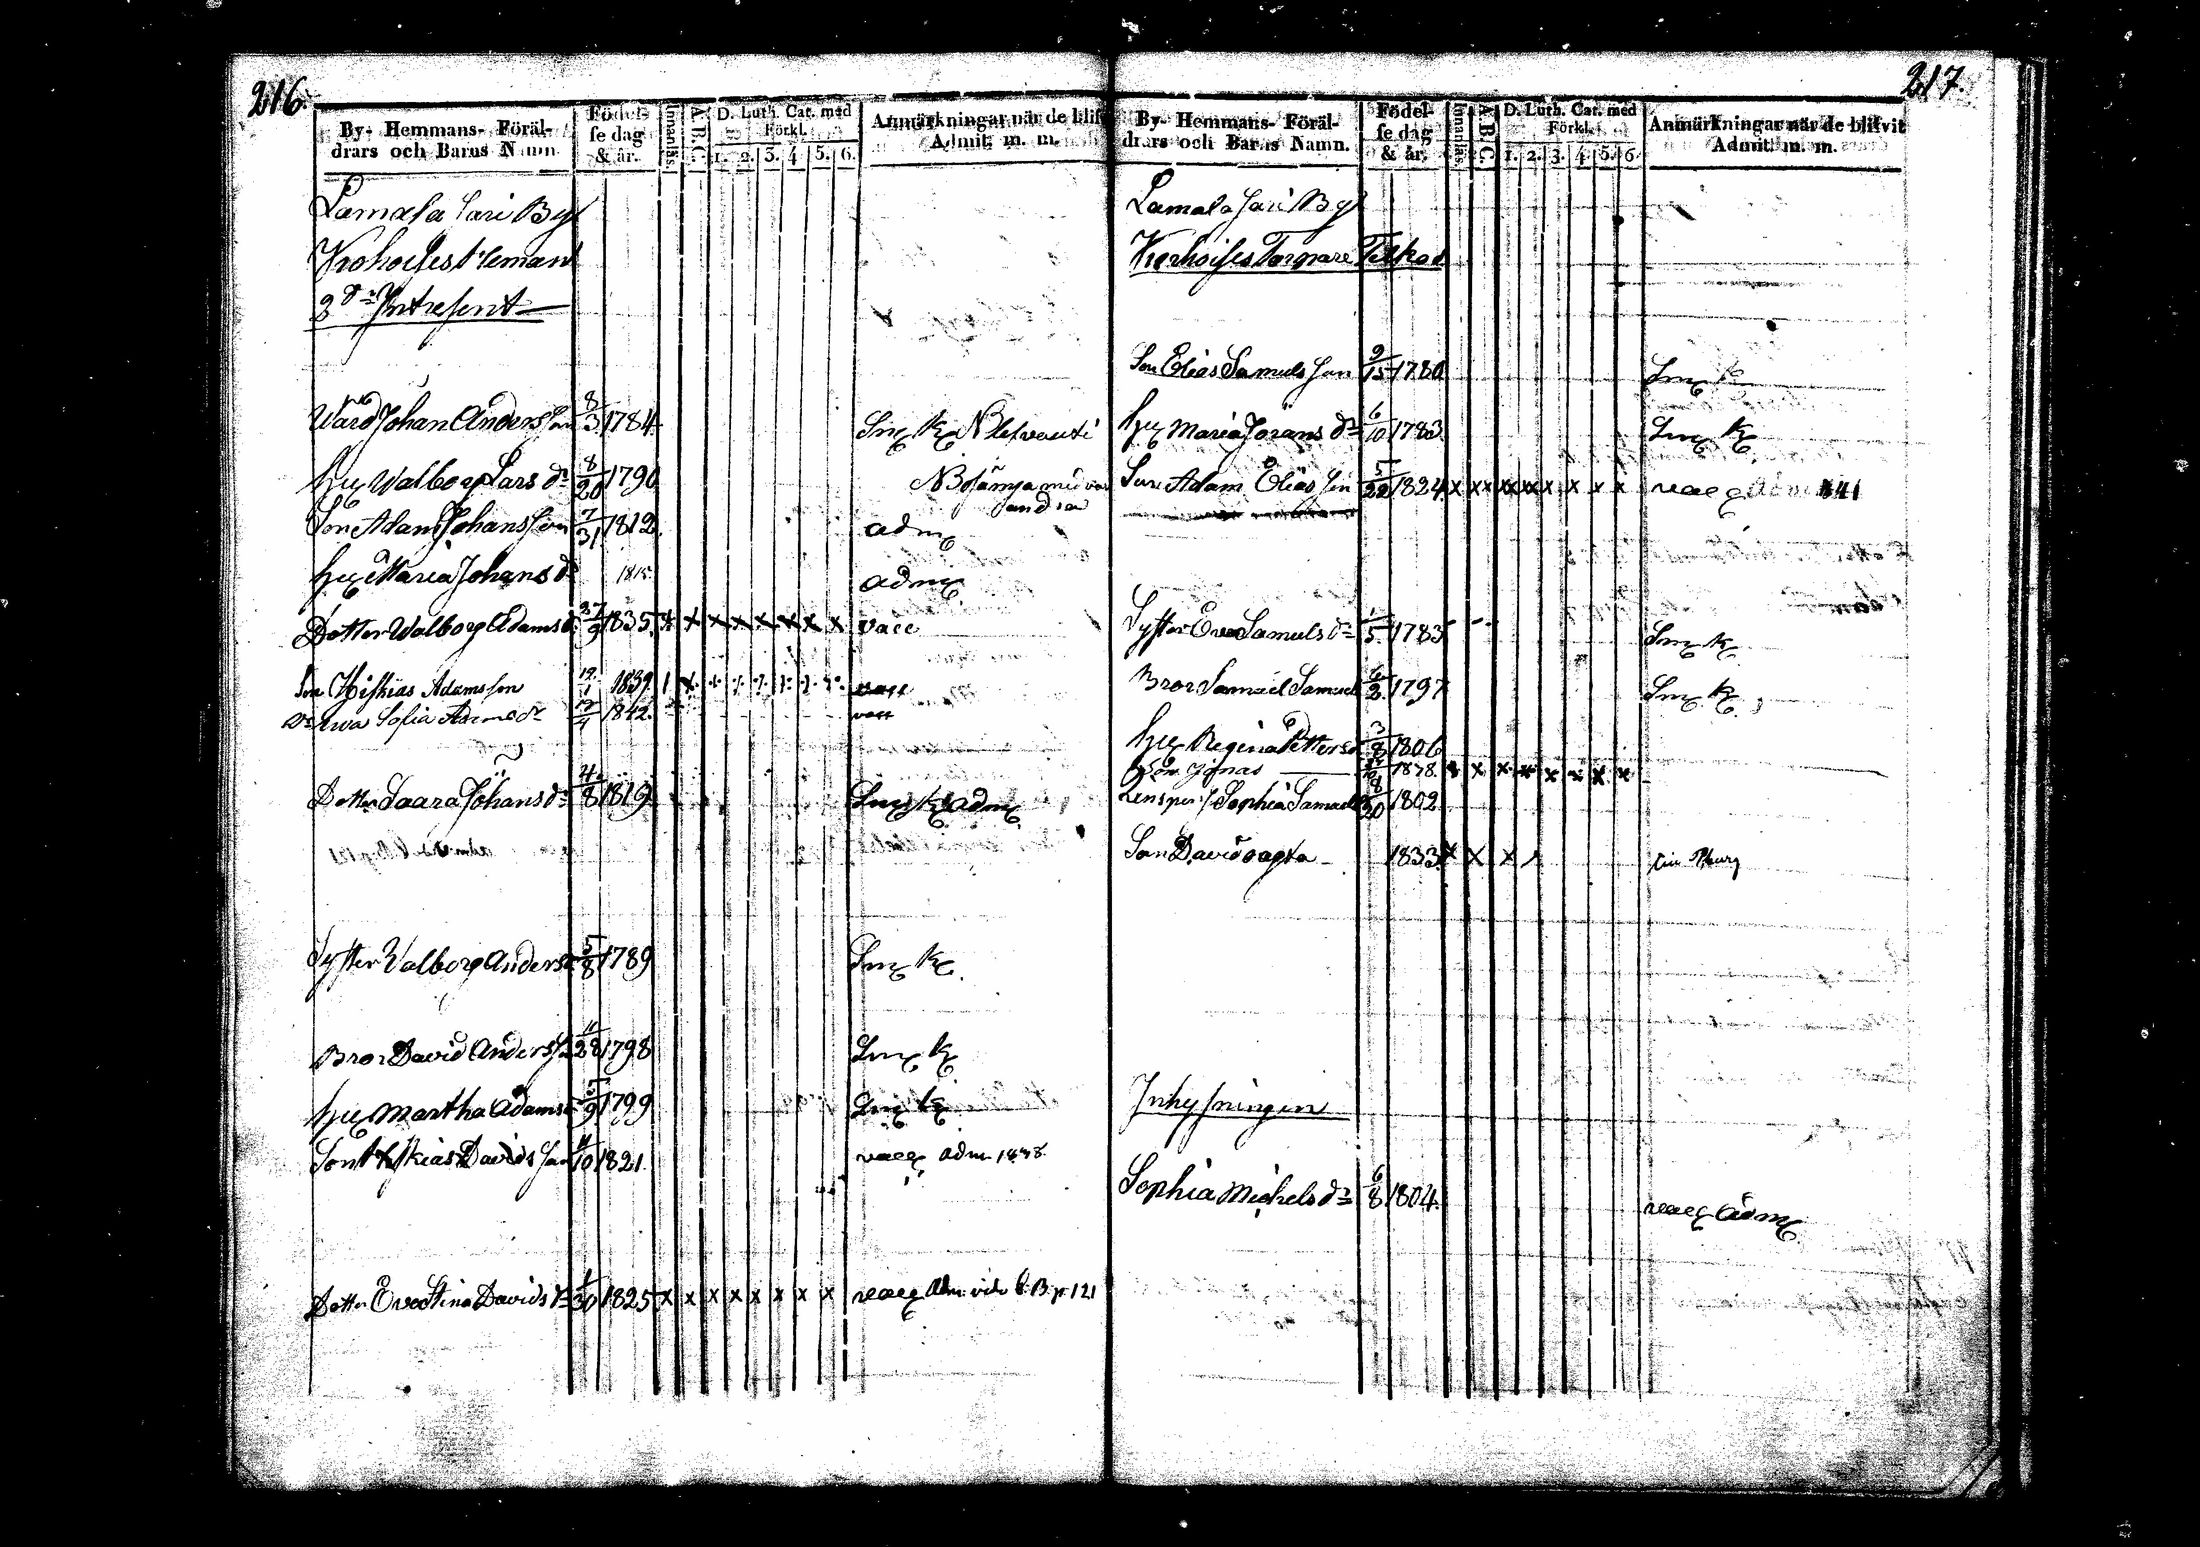 216.
By- Hemmans- Föräl-
drars och Barns Namn
Födel-
se dag
& år.
Innanläs.
A.B.C.
D. Luth. Cat. med
Förkl.
1. 2. 3. 4. 5. 6.
Anmärkningar när de blif
Admit. m. m.
Lamala Jari By
Heman
2 dn Intresent
Wärd Johan Anders Son 8/3 1784 Smk K
Hu Walborg Lars dr 8/20 1790
Son Adam Johans Son 7/31 1812 adm
Hu Maria Johans dr 1815 adm
Dotter Walborg Adams d 27/9 1835 x x x x x x x x vacc
Son Hiskias Adamsson 12/1 1839
Dr Ewa Sofia Adamsdr 12/4 1842 vacc
Dotter Saara Johans dr 4/8 1819 adm
Syster Walborg Anders d 5/8 1789 Smk K
Bror David Anders Son 11/28 1798 Smk K
Hu Martha Adams d 5/9 1799 Smk K
Son Hiskias Davids Son 11/10 1821 vacc adm 1838
Dotter Eva Stina Davids dr 1/30 1825 x x x x x x x x vacc Adm vide C.B. p 121
217.
By- Hemmans- Föräl-
drars och Barns Namn.
Födel-
se dag
& år.
Innanläs.
A.B.C.
D. Luth. Cat. med
Förkl.
1. 2. 3. 4. 5. 6.
Anmärkningar när de blifvit
Admit. m. m.
Lamala Jari By
Torpare
Son Elias Samuels Son 9/15 1780 Smk K
Hu Maria Jörans dr 6/10 1783 Smk K
Son Adam Elias Son 5/22 1824 x xx xx xx x x x x vacc Adm 1841
Syster Eva Samuels dr 1/5 1783 Smk K
Bror Samuel Samuel 6/2 1797 Smk K
Hu Regina Petters d 3/8 1806
Son Jonas x x x x x x x
Sophia Samuels 8/20 1802
Son David oägta 1833 x x x
Inhysningen
Sophia Michels dr 6/8 1804 vacc adm